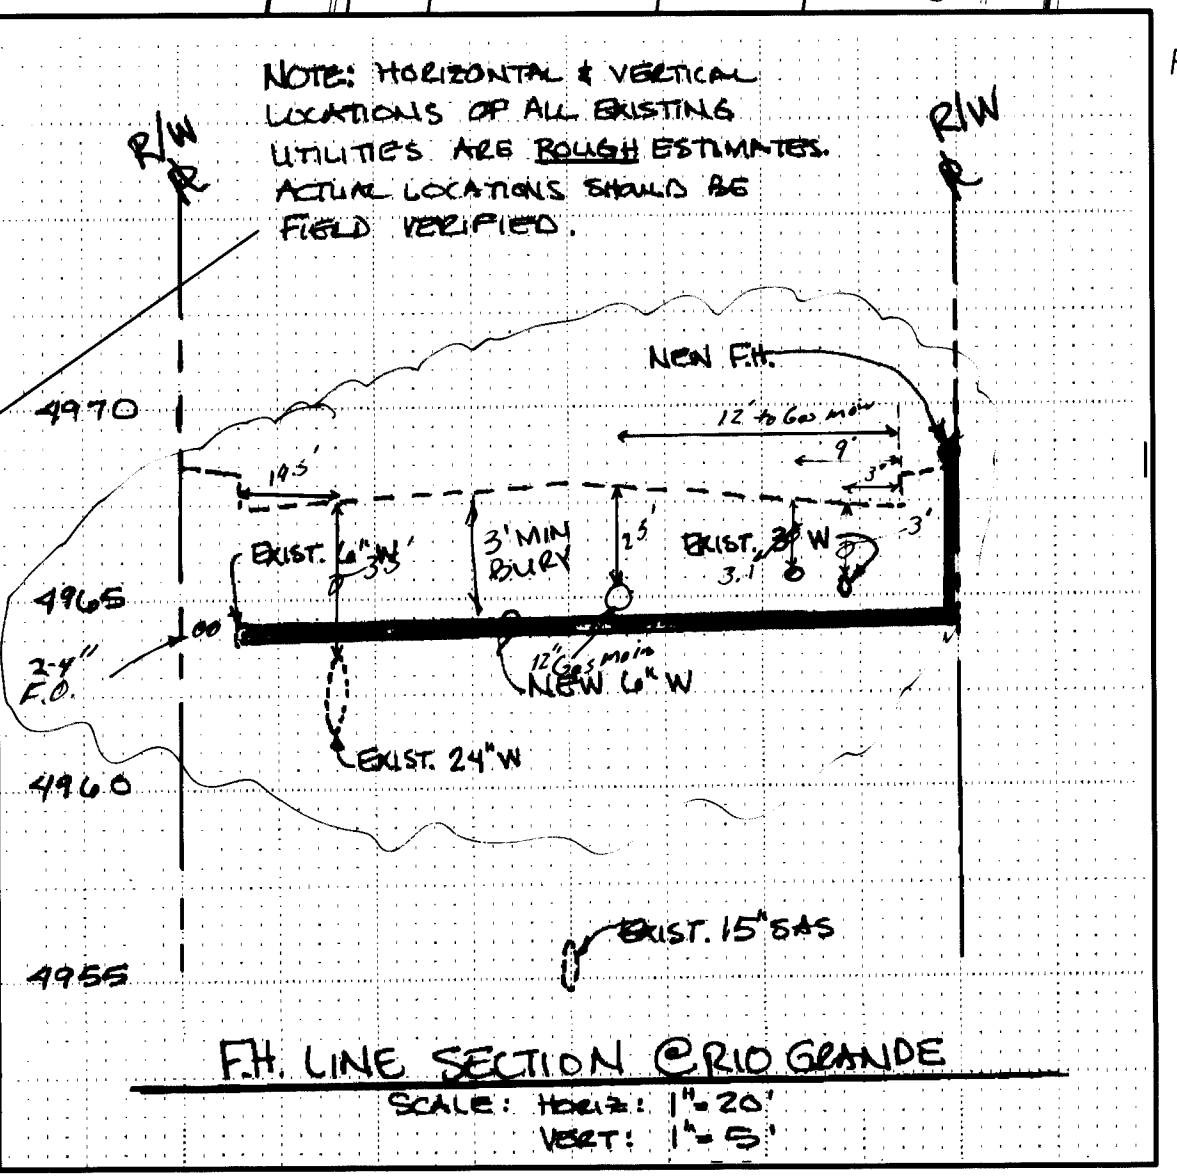 NOTE: HORIZONTAL & VERTICAL
LOCATIONS OF ALL EXISTING
UTILITIES ARE ROUGH ESTIMATES.
ACTUAL LOCATIONS SHOULD BE
FIELD VERIFIED.
R/W
R/W
NEW F.H.
4970
12' to Gas main
9'
3'
19.5'
EXIST. 6" W
3.5'
3' MIN
BURY
2.5'
EXIST. W
3.1'
3'
4965
2-4"
F.O.
12" Gas main
NEW 6" W
EXIST. 24" W
4960
EXIST. 15" SAS
4955
F.H. LINE SECTION @ RIO GRANDE
SCALE: HORIZ: 1"=20'
VERT: 1"=5'